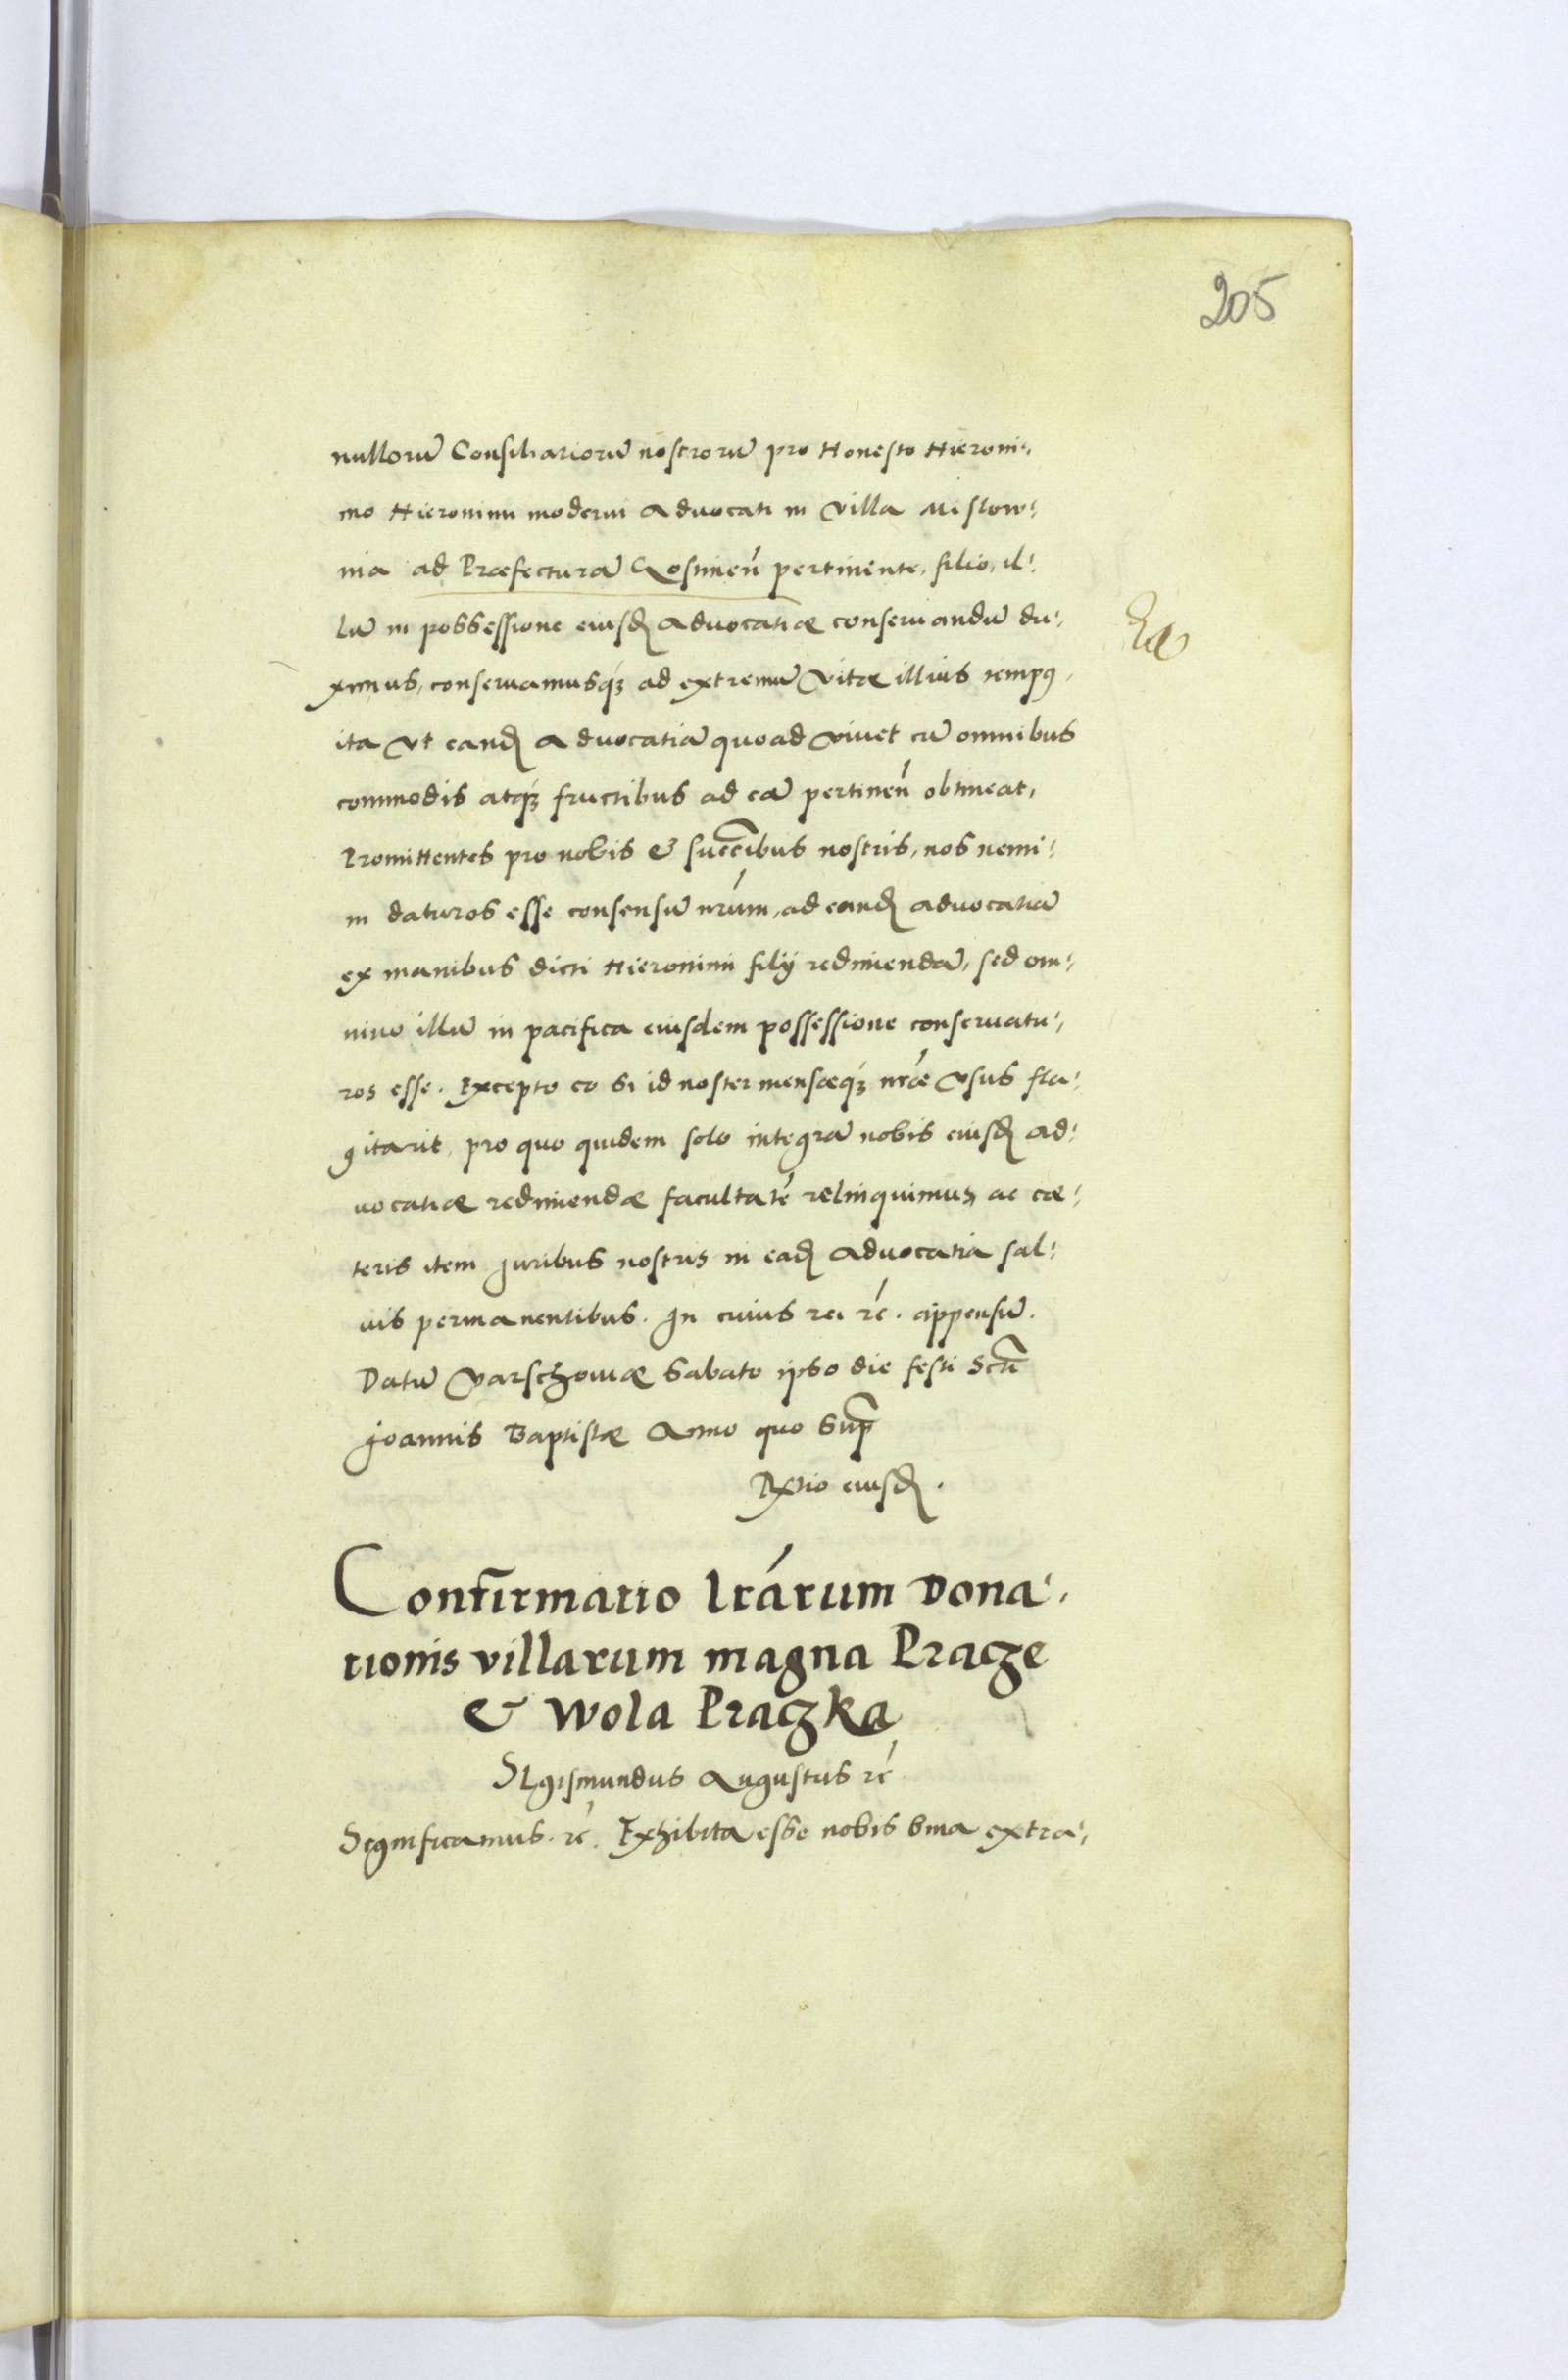 205
nulloru͂ Consiliarioru͂ nostroru͂ pro Honesto Hieroni⸗
mo Hieronimi moderni Advocati in Villa Mistow⸗
nia ad Præfectura͂ Gostinen̄ pertinente, filio, il⸗
lu͂ in possessione eiusd̄ Advocatiæ conseruandu͂ du⸗
ximus, conseruamusq́ꝫ ad extremu͂ Vitæ illius tempꝯ,
ita Vt eand̄ Advocatia͂ quoad Viuet cu͂ omnibus
commodis atq́ꝫ fructibus ad ea͂ pertinen̄ obtineat,
Promittentes pro nobis & succ͂ibus nostris, nos nemi⸗
ni daturos esse consensu͂ nr̄um, ad eand̄ advocatia͂
ex manibus dicti Hieronimi filij redimenda͂, sed om⸗
nino illu͂ in pacifica eiusdem possessione conseruatu⸗
ros esse. Excepto eo si id noster mensæq́ꝫ nr̄æ Vsus fla⸗
gitarit, pro quo quidem solo integra͂ nobis eiusd̄ ad⸗
uocatiæ redimendæ facultate͂ relinquimus, ac cæ⸗
teris item juribus nostris in ead̄ Advocatia sal⸗
uis permanentibus. In cuius rei ꝛc̄. appensu͂.
Datu͂ Varschouiæ Sabato ipso die festi Sct͂i
Joannis Baptistæ Anno quo Sup͂
Rx͂tio eiusd̄.
Confirmatio lr̄arum Dona⸗
tionis villarum magna Pracze
& Wola Praczka
SIgismundus Augustus ꝛc̄
Significamus. ꝛc̄. Exhibita esse nobis bina extra⸗